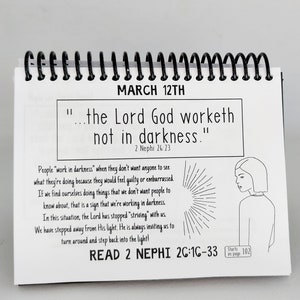 MARCH 12TH
"...the Lord God worketh
not in darkness."
2 Nephi 26:23
People "work in darkness" when they don't want anyone to see
what they're doing because they would feel guilty or embarrassed.
If we find ourselves doing things that we don't want people to
know about, that is a sign that we're working in darkness.
In this situation, the Lord has stopped "striving" with us.
We have stepped away from His light. He is always inviting us to
turn around and step back into the light!
READ 2 NEPHI 26:16-33
Starts
on page
103